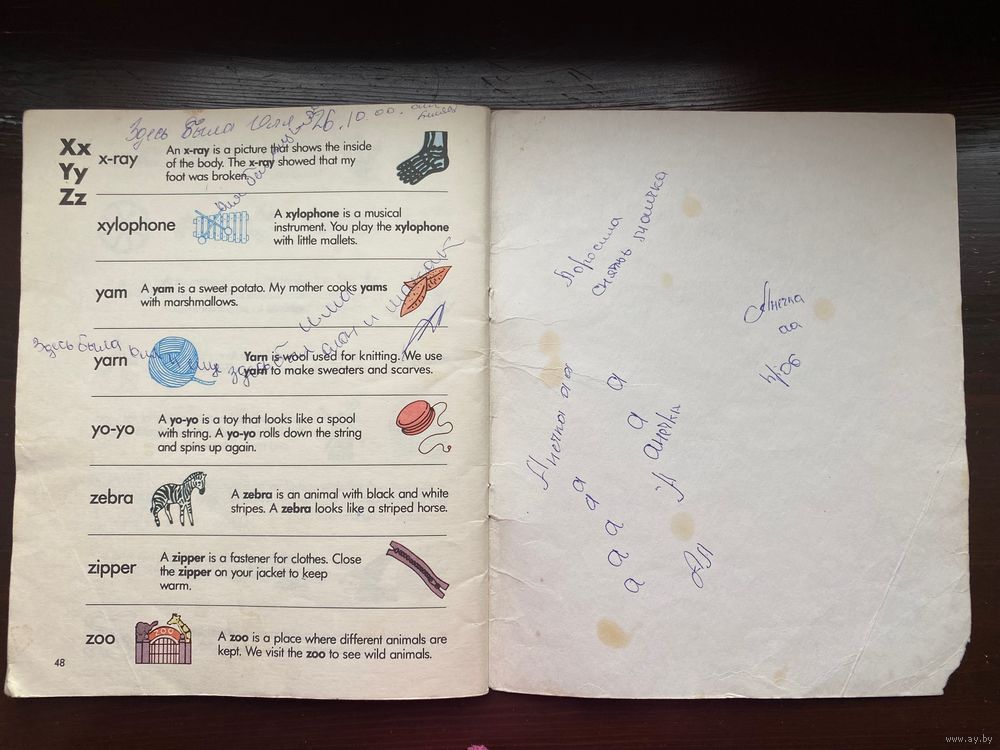 Здесь была Юля 26.10.00.
Xx
Yy
Zz
x-ray
An x-ray is a picture that shows the inside
of the body. The x-ray showed that my
foot was broken.
xylophone
A xylophone is a musical
instrument. You play the xylophone
with little mallets.
yam
A yam is a sweet potato. My mother cooks yams
with marshmallows.
Здесь была Юля и
yarn
Yarn is wool used for knitting. We use
yarn to make sweaters and scarves.
yo-yo
A yo-yo is a toy that looks like a spool
with string. A yo-yo rolls down the string
and spins up again.
zebra
A zebra is an animal with black and white
stripes. A zebra looks like a striped horse.
zipper
A zipper is a fastener for clothes. Close
the zipper on your jacket to keep
warm.
zoo
ZOO
A zoo is a place where different animals are
kept. We visit the zoo to see wild animals.
48
Поросила
Анечка
аа
Анечка а а
а
а
анечка
а
а
а
а
а
www.ay.by